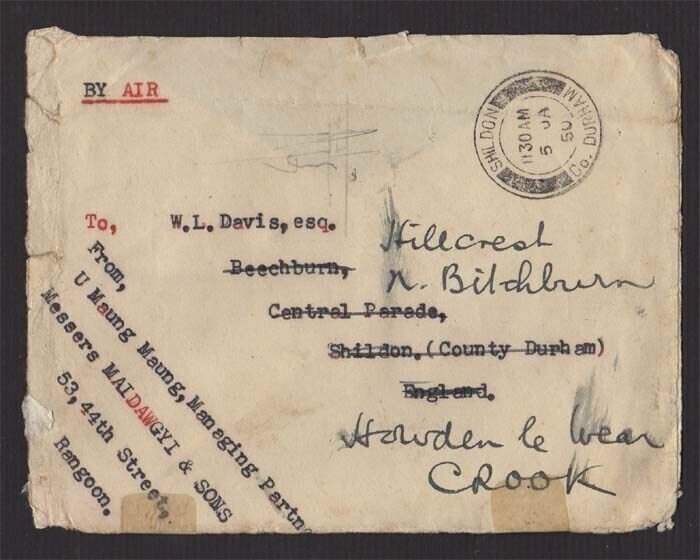 BY AIR
SHILDON
Co. DURHAM
1130AM
5 JA
50
To, W.L. Davis, esq.
Beechburn,
Central Parade,
Shildon. (County Durham)
England.
Hillcrest
N. Bitchburn
Howden le Wear
CROOK
From,
U Maung Maung, Managing Partn
Messers MAIDAWGYI & SONS
53, 44th Street,
Rangoon.